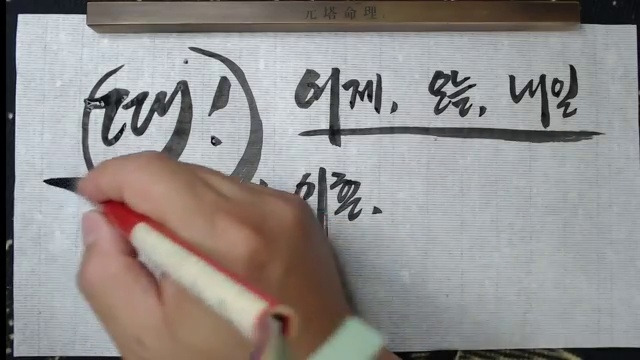 元塔命理
때! 어제, 오늘, 내일
이혼.